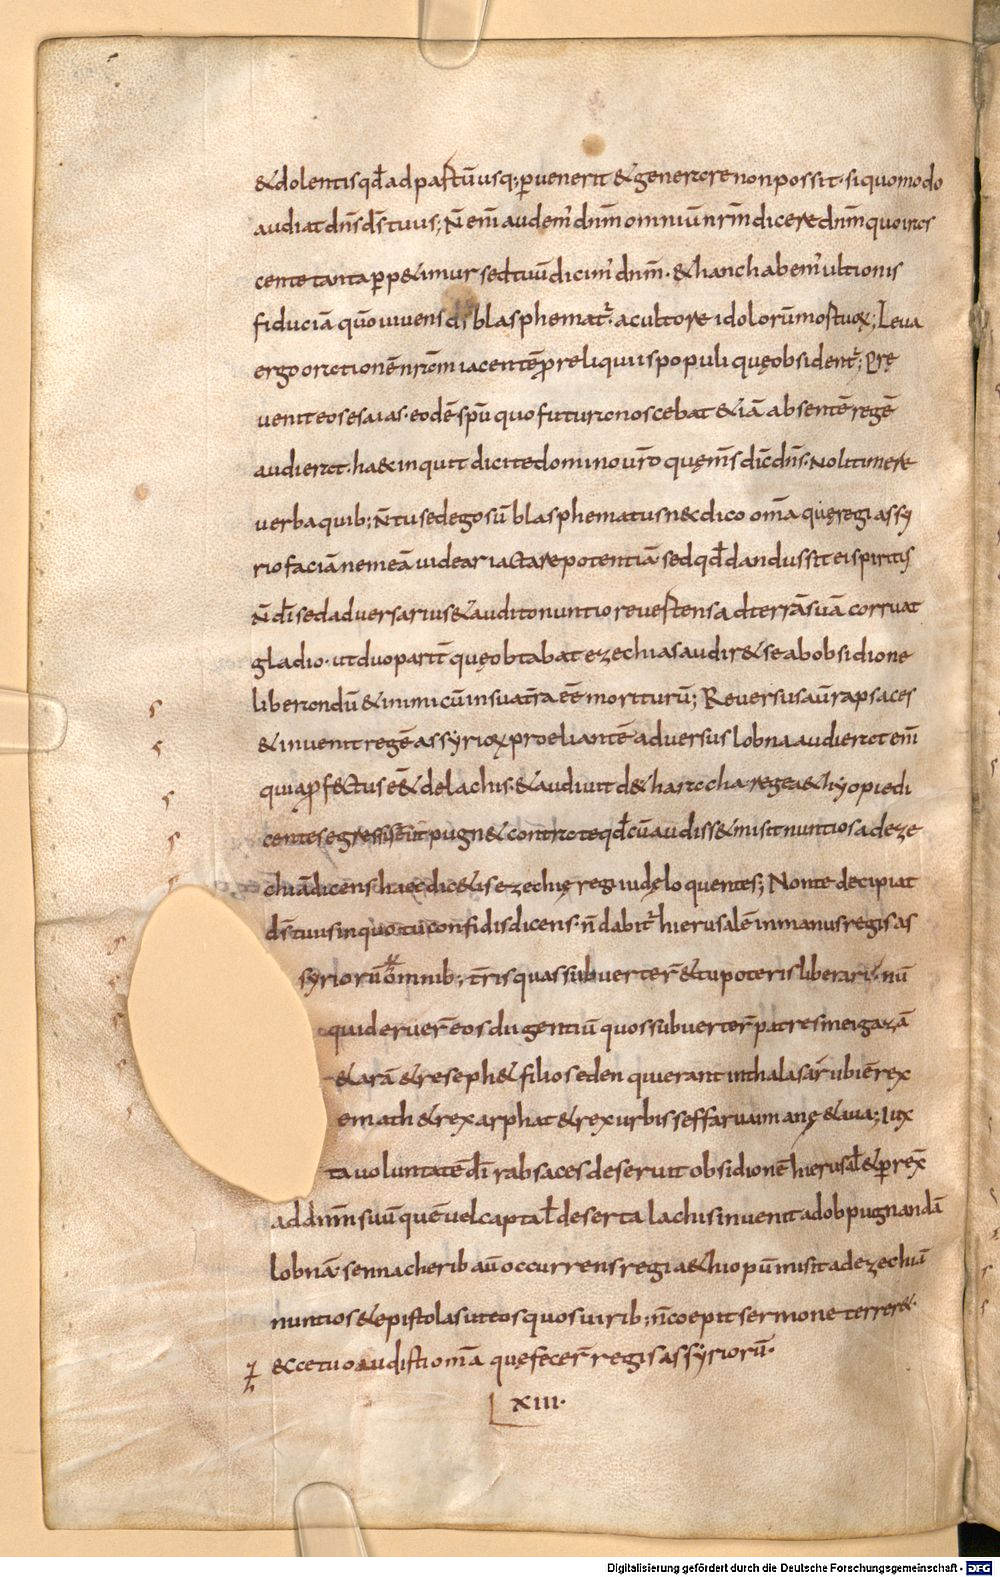 & dolentis qđ ad partū usq; ꝑvenerit & generare non possit. si quomodo
audiat dn̄s d̄s tuus; N̄ eni audem' dn̄m omniū nr̄m dicere dn̄m quo ires
cente tanta ꝑp&imur sed tuū dicim' dn̄m. & hanc habem' ultionis
fiduciā quō vivens d̄s blasphematur. a cultore idolorū mortuoꝝ; Leva
ergo orationē nr̄am iacentē p reliquiis populi quę obsident'; Prę
venit eos esaias. eodē sp̄u quo futura noscebat & iā absentē regē
audierat. ha& inquit dicite domino vr̄o quęm̄s dic̄ dn̄s. Noli timere
verba quib; n̄ tu sed ego sū blasphematus n& dico om̄a quę regi assy
rio faciā ne meā videar iactare potentiā sed qđ dandus sit ei spiritus
n̄ dī sed adversarius & audito nuntio revertens ad terrā suā corruat
gladio. ut duo parit' quę obtabat ezechias audir& se ab obsidione
liberandū & inimicū in sua t̄ra eē moriturū; Reversus aū rapsaces
& invenit regē assyrioꝝ proeliantē adversus lobna audierat eni
quia ꝓfectus ēēt de lachis. & audivit de tharacha rege aethyopie di
centes egressus ē ut pugn& contra te qđ cū audiss& misit nuntios ad eze
chiā dicens haec dic&is ezechię regi iudę loquentes; Non te decipiat
d̄s tuus in quo tu confidis dicens. n̄ dabit' hierusalē in manus regis as
syriorū omnib; t̄ris quas subverter̄ & tu poteris liberari. nū
quid eruer̄ eos dii gentiū quos subverter̄ patres mei gazā
& arā & reseph & filios eden qui erant in thalasar ubi ē rex
emath & rex arphat & rex urbis seffarvaim anę & ava; Iux
ta voluntatē dī rabsaces deseruit obsidionē hierusal̄ & ꝑrex̄
ad dn̄m suū quē vel capta ł deserta lachis invenit ad obpugnandā
lobnā. sennacherib aū occurrens regi a&hiopū misit ad ezechiā
nuntios & epistolas ut eos quos virib; n̄ coepit sermone terrer&.
& cetuo audisti om̄a quę fecer̄ regis assyriorū.
XIII.
Digitalisierung gefördert durch die Deutsche Forschungsgemeinschaft - DFG